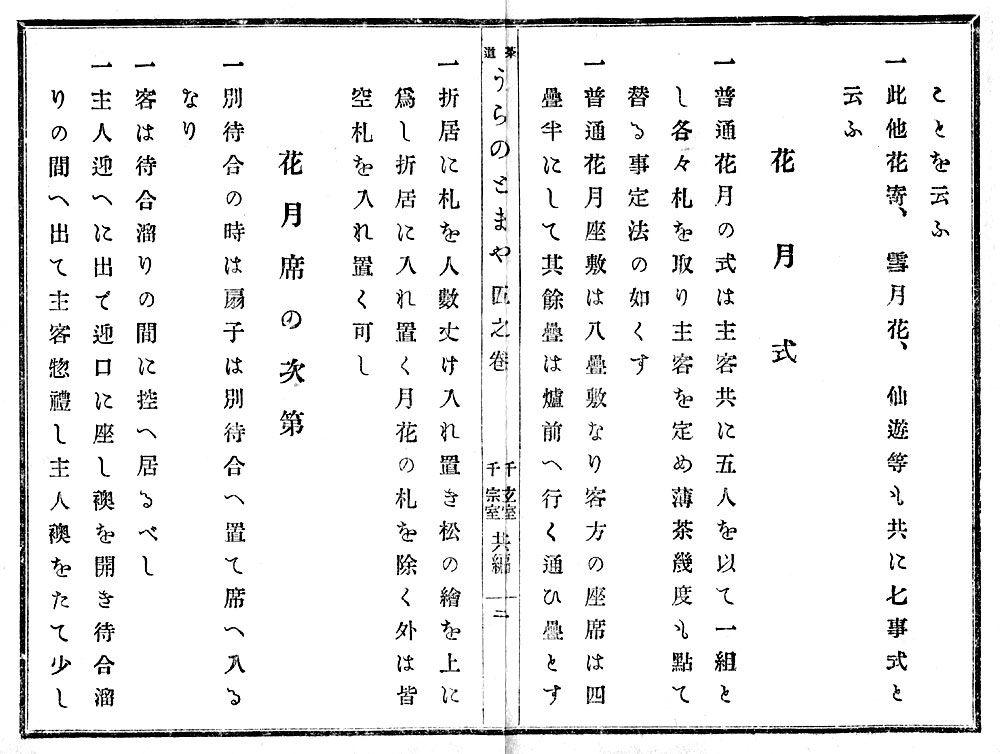 ことを云ふ
一此他花寄、雪月花、仙遊等も共に七事式と
云ふ
花月式
一普通花月の式は主客共に五人を以て一組と
し各々札を取り主客を定め薄茶幾度も點て
替る事定法の如くす
一普通花月座敷は八疊敷なり客方の座席は四
疊半にして其餘疊は爐前へ行く通ひ疊とす
茶道
うらのとまや 四之卷
千玄室
千宗室
共編
二
一折居に札を人數丈け入れ置き松の繪を上に
爲し折居に入れ置く月花の札を除く外は皆
空札を入れ置く可し
花月席の次第
一別待合の時は扇子は別待合へ置て席へ入る
なり
一客は待合溜りの間に控へ居るべし
一主人迎へに出で迎口に座し襖を開き待合溜
りの間へ出て主客惣禮し主人襖をたて少し